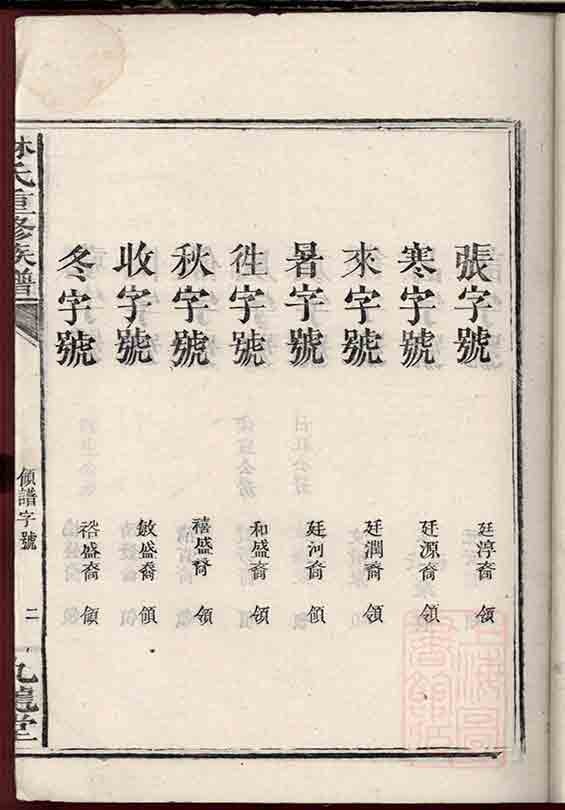 張字號 廷淳裔 領
寒字號 廷源裔 領
來字號 廷潤裔 領
暑字號 廷河裔 領
徃字號 和盛裔 領
秋字號 禧盛裔 領
收字號 敏盛裔 領
冬字號 裕盛裔 領
林氏重修族譜
領譜字號
二
九龍堂
上海圖書館藏